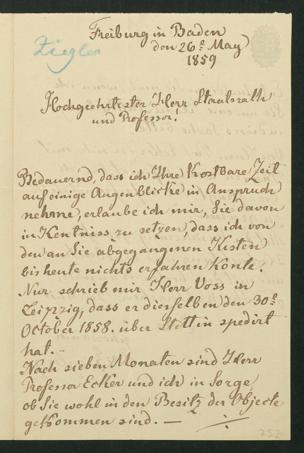 Freiburg in Baden
den 26t. May
1859
Ziegler
Hochgeehrtester Herr Staatsrath
und Professor!
Bedauernd, dass ich Ihre kostbare Zeit
auf einige Augenblicke in Anspruch
nehme, erlaube ich mir, Sie davon
in Kentniss zu setzen, dass ich von
den an Sie abgegangenen Kisten
bis heute nichts erfahren konte.
Nur schrieb mir Herr Voss in
Leipzig, dass er dieselben den 30t.
October 1858. über Stettin spedirt
hat. –
Nach sieben Monaten sind Herr
Professor Ecker und ich in Sorge,
ob Sie wohl in den Besitz der Objecte
gekommen sind. –
752